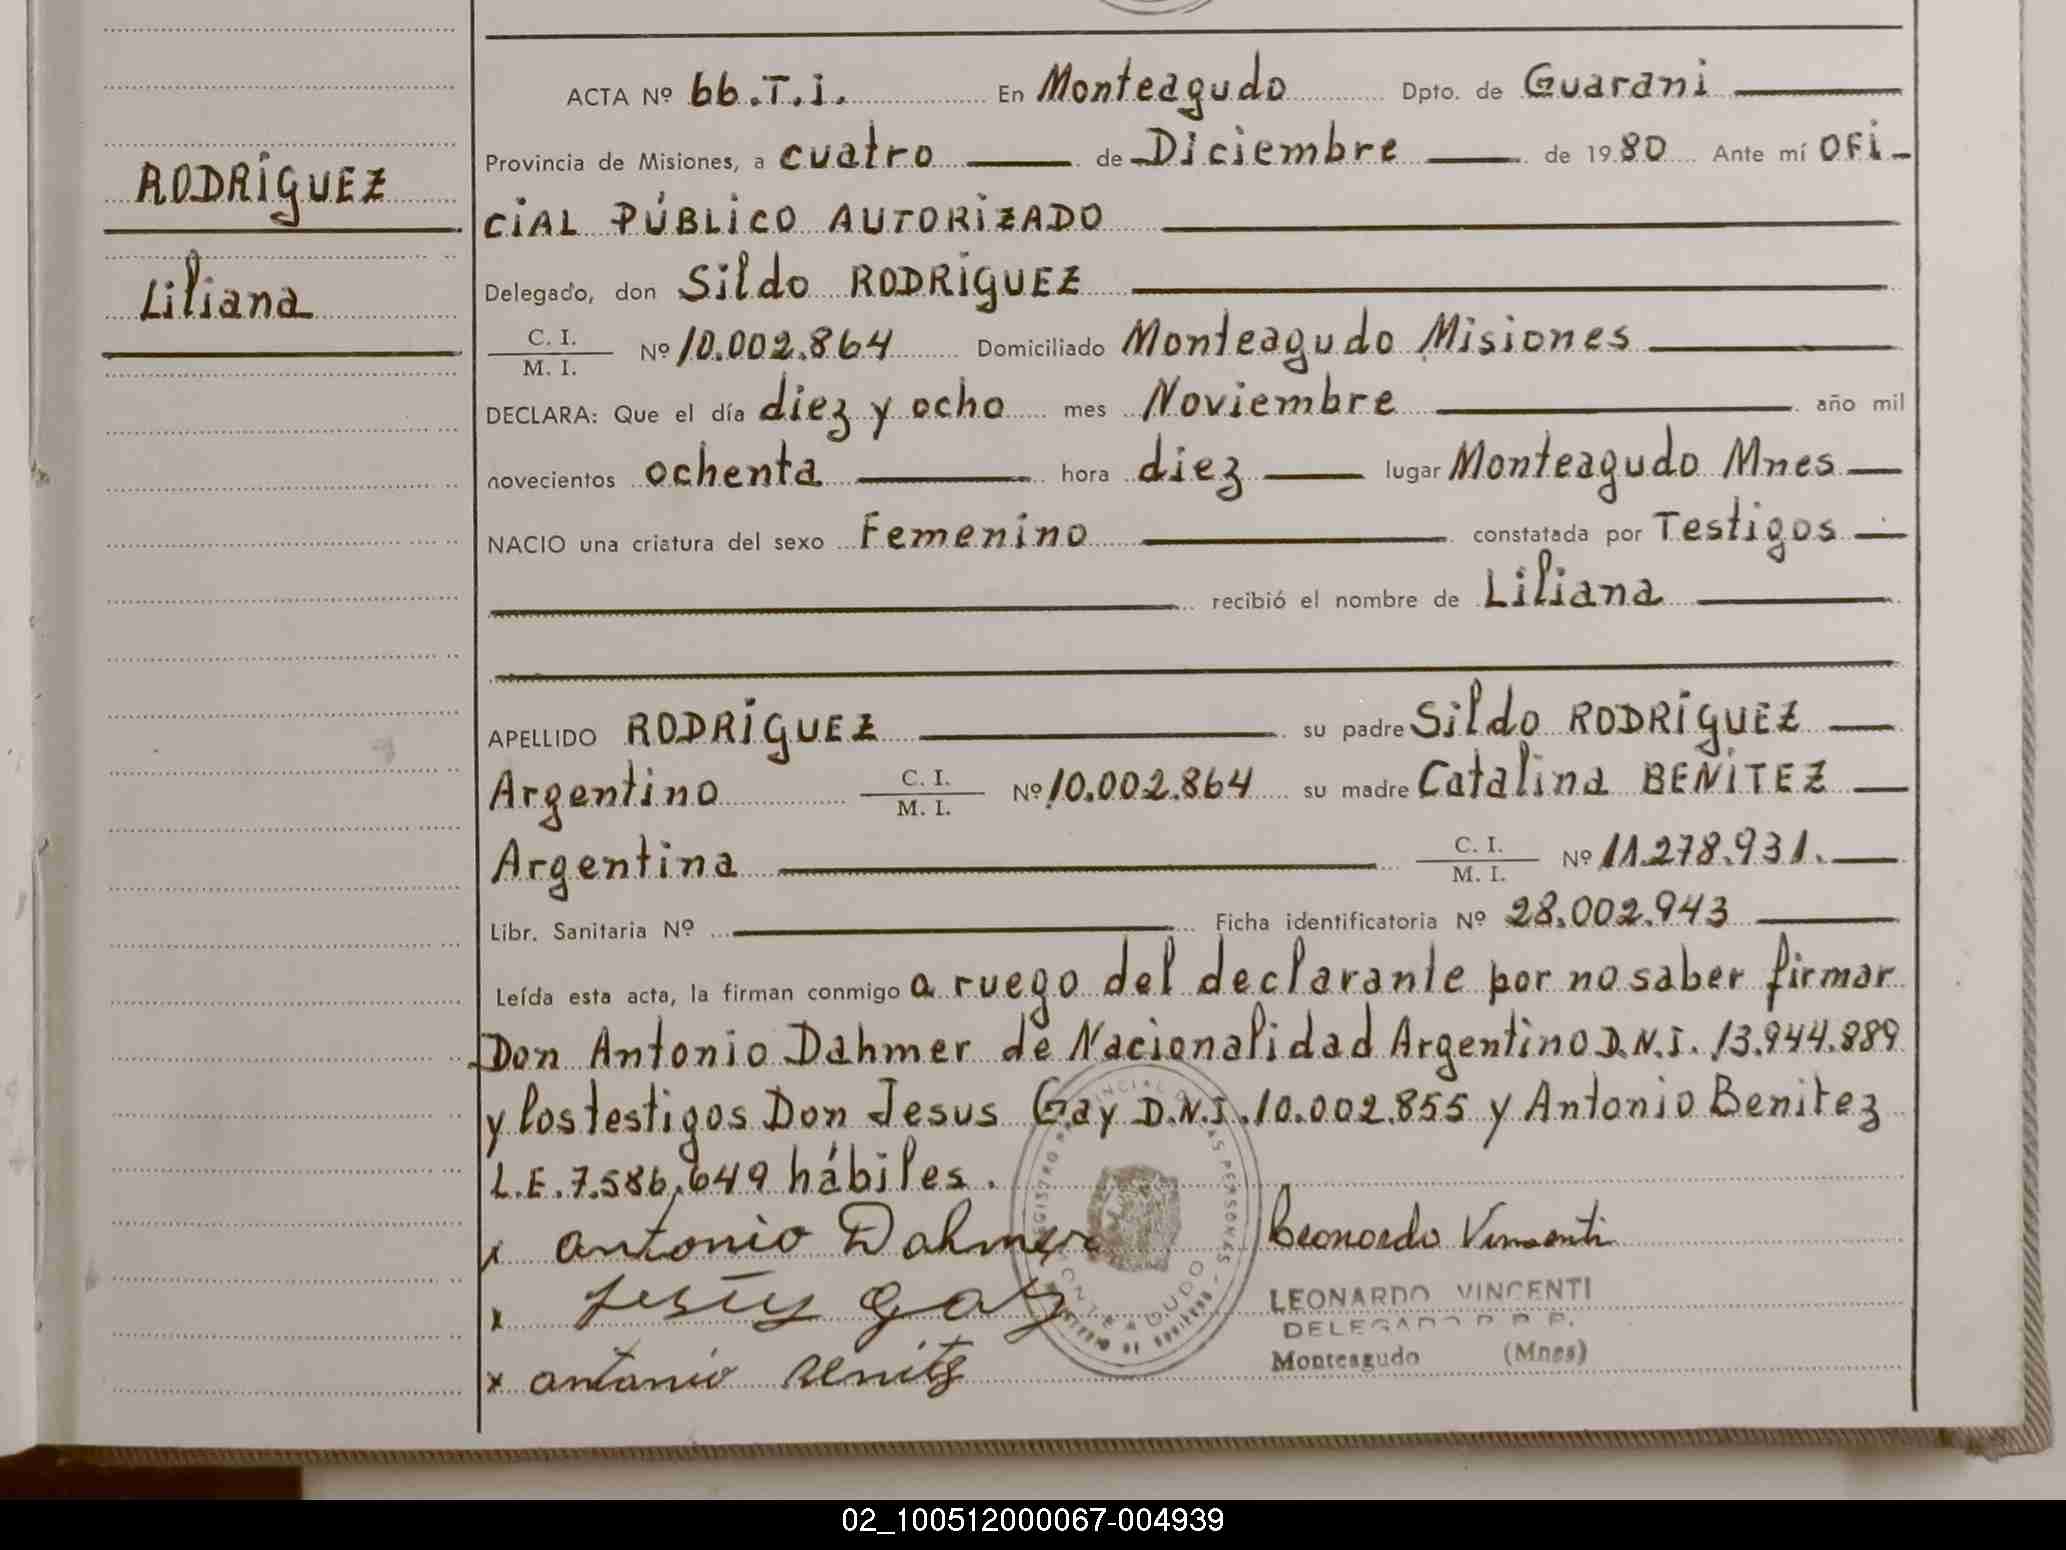 RODRÍGUEZ
Liliana
ACTA Nº 66.T.i. En Monteagudo Dpto. de Guarani
Provincia de Misiones, a cuatro de Diciembre de 1980 Ante mí OFi-
CiAL PÚBLiCO AUTORiZADO
Delegado, don Sildo RODRÍGUEZ
C. I.
M. I. Nº 10.002.864 Domiciliado Monteagudo Misiones
DECLARA: Que el día diez y ocho mes Noviembre año mil
novecientos ochenta hora diez lugar Monteagudo Mnes
NACIO una criatura del sexo Femenino constatada por Testigos
recibió el nombre de Liliana
APELLIDO RODRÍGUEZ su padre Sildo RODRÍGUEZ
Argentino C. I. M. I. Nº 10.002.864 su madre Catalina BENÍTEZ
Argentina C. I. M. I. Nº 11.278.931.
Libr. Sanitaria Nº Ficha identificatoria Nº 28.002.943
Leída esta acta, la firman conmigo a ruego del declarante por no saber firmar
Don Antonio Dahmer de Nacionalidad Argentino D.N.I. 13.944.889
y los testigos Don Jesus Gay D.N.I. 10.002.855 y Antonio Benitez
L.E. 7.586.649 hábiles.
x antonio Dahmer
Leonardo Vincenti
x Jesus Gay
LEONARDO VINCENTI
DELEGADO R. P. P.
x antonio Benitez
Monteagudo (Mnes)
02_100512000067-004939